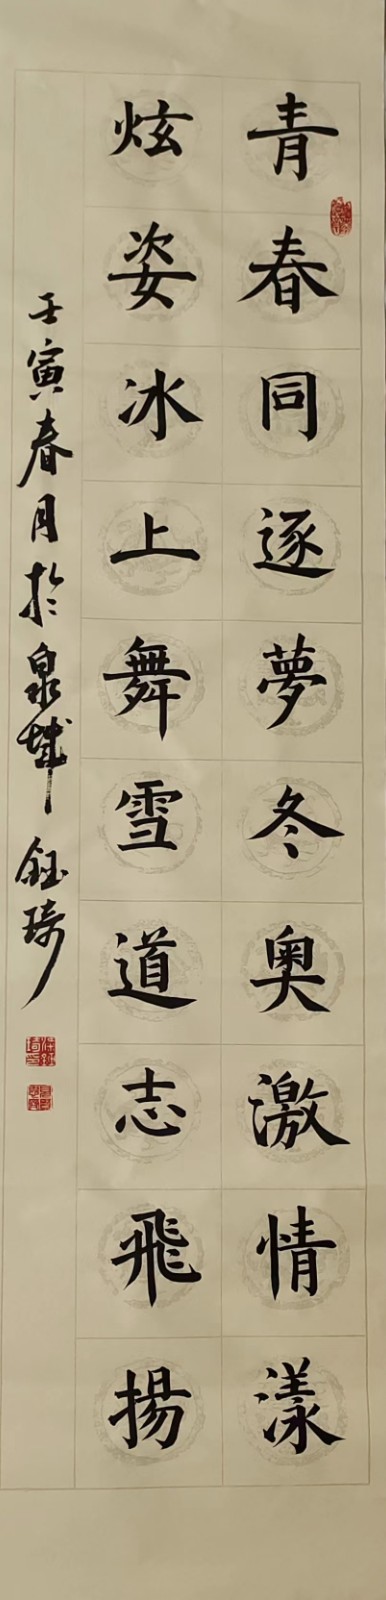 青春同逐夢冬奧激情漾
炫姿冰上舞雪道志飛揚
壬寅春月於泉城鈺琦